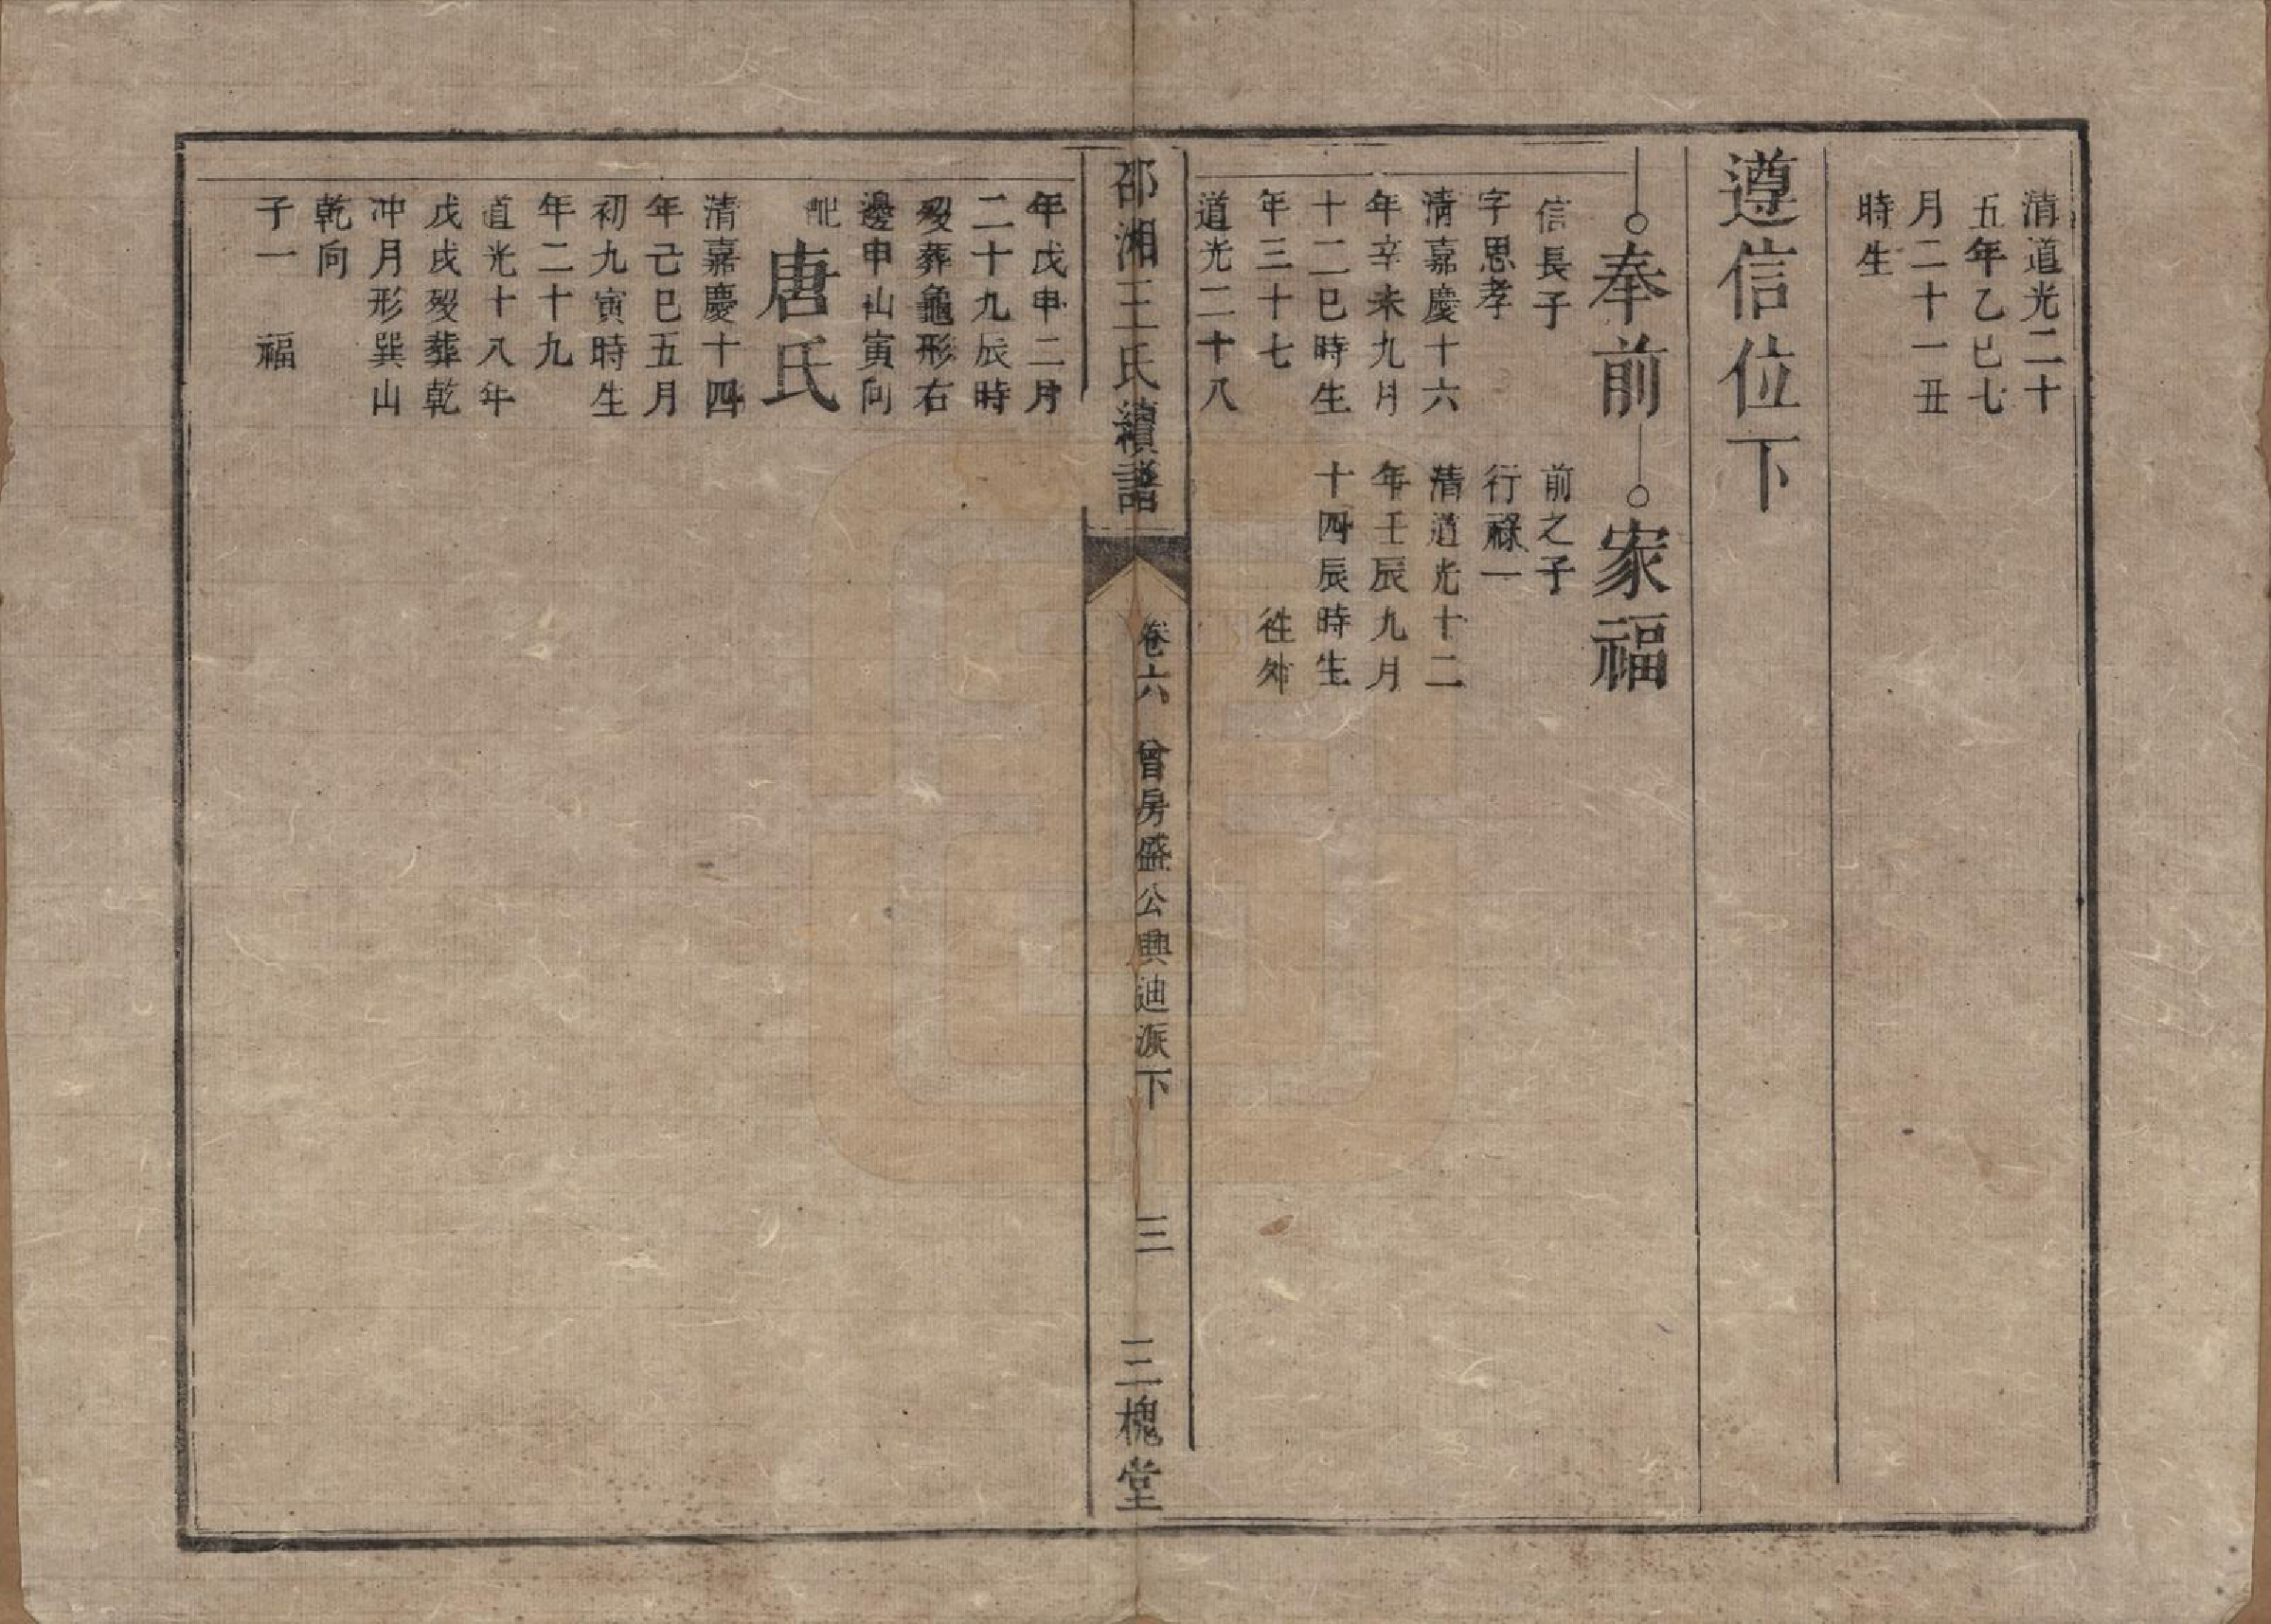 清道光二十
五年乙巳七
月二十一丑
時生
遵信位下
奉前
信長子
字思孝
清嘉慶十六
年辛未九月
十二巳時生
年三十七
道光二十八
家福
前之子
行祿一
清道光十二
年壬辰九月
十四辰時生
徃外
邵湘王氏續譜
卷六 曾房盛公興迪派下
三
三槐堂
年戊申二月
二十九辰時
歿葬龜形右
邊申山寅向
配
唐氏
清嘉慶十四
年己巳五月
初九寅時生
年二十九
道光十八年
戊戌歿葬乾
冲月形巽山
乾向
子一 福